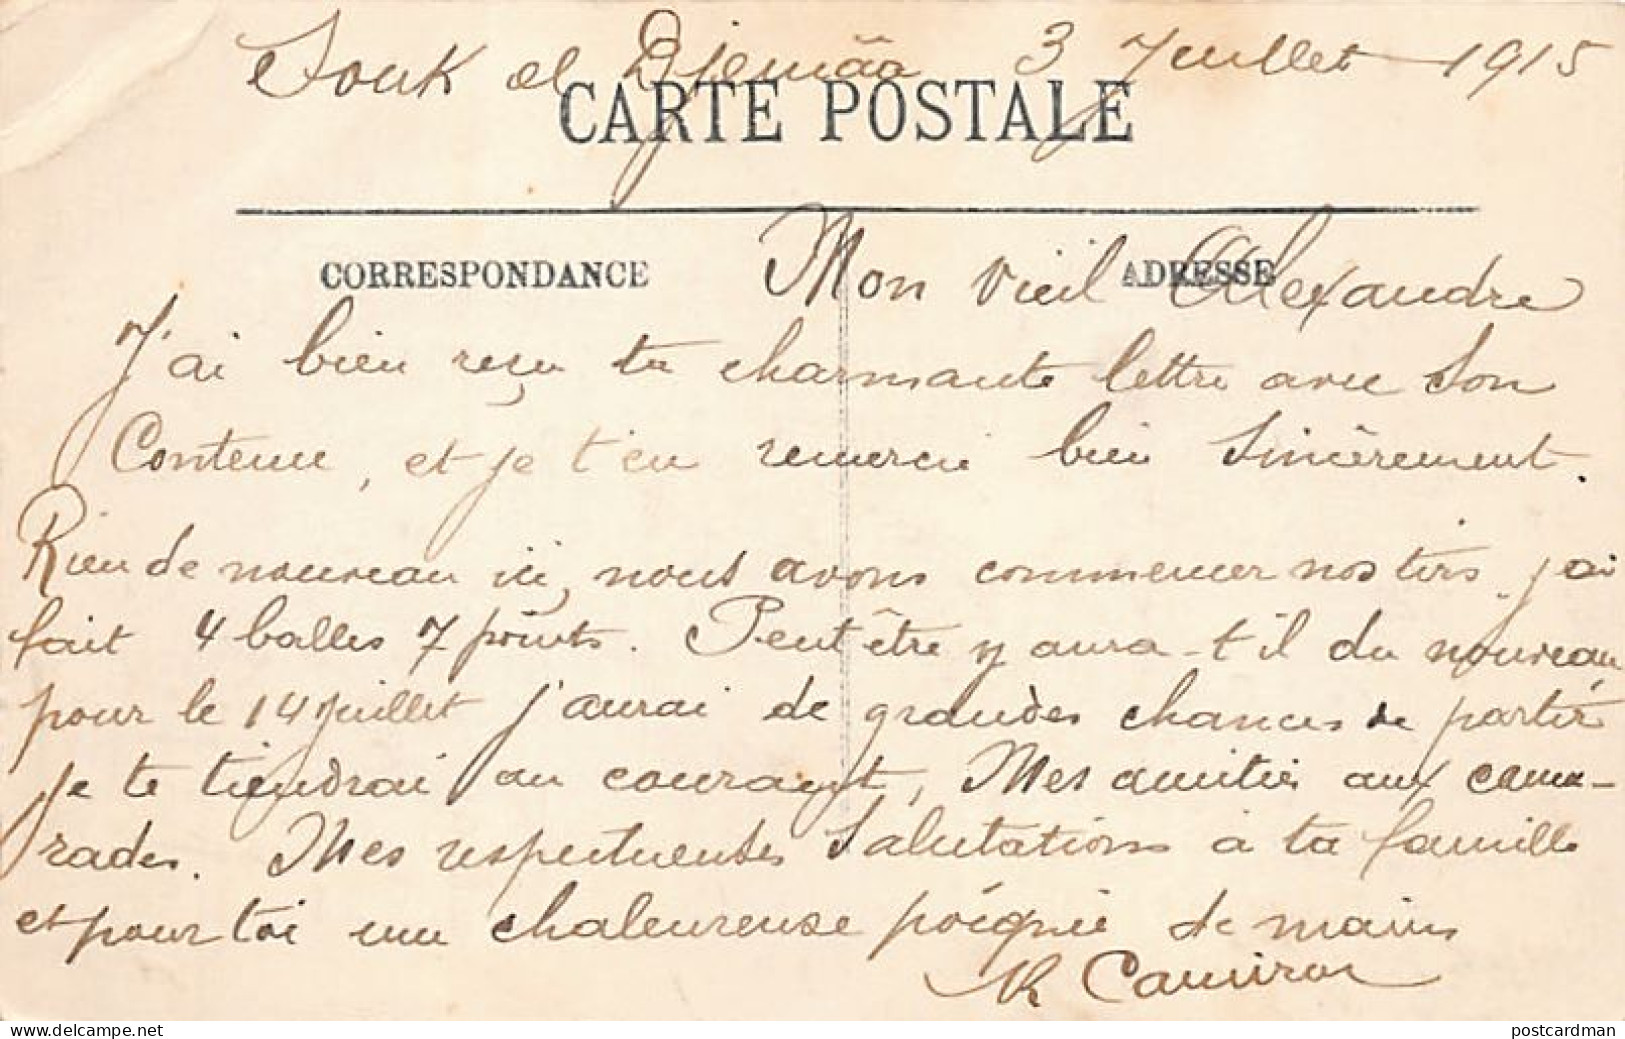 Souk el Djemâa 3 Juillet 1915
CARTE POSTALE
CORRESPONDANCE
ADRESSE
Mon vieil Alexandre
J'ai bien reçu ta charmante lettre avec son
Contenu, et je t'en remercie bien sincèrement.
Rien de nouveau ici, nous avons commencer nos tirs j'ai
fait 4 balles 7 points. Peut être y aura-t-il du nouveau
pour le 14 juillet j'aurai de grandes chances de partir
je te tiendrai au courant, Mes amitiés aux cama-
rades. Mes respectueuses salutations à ta famille
et pour toi une chaleureuse poignée de mains
postcardman